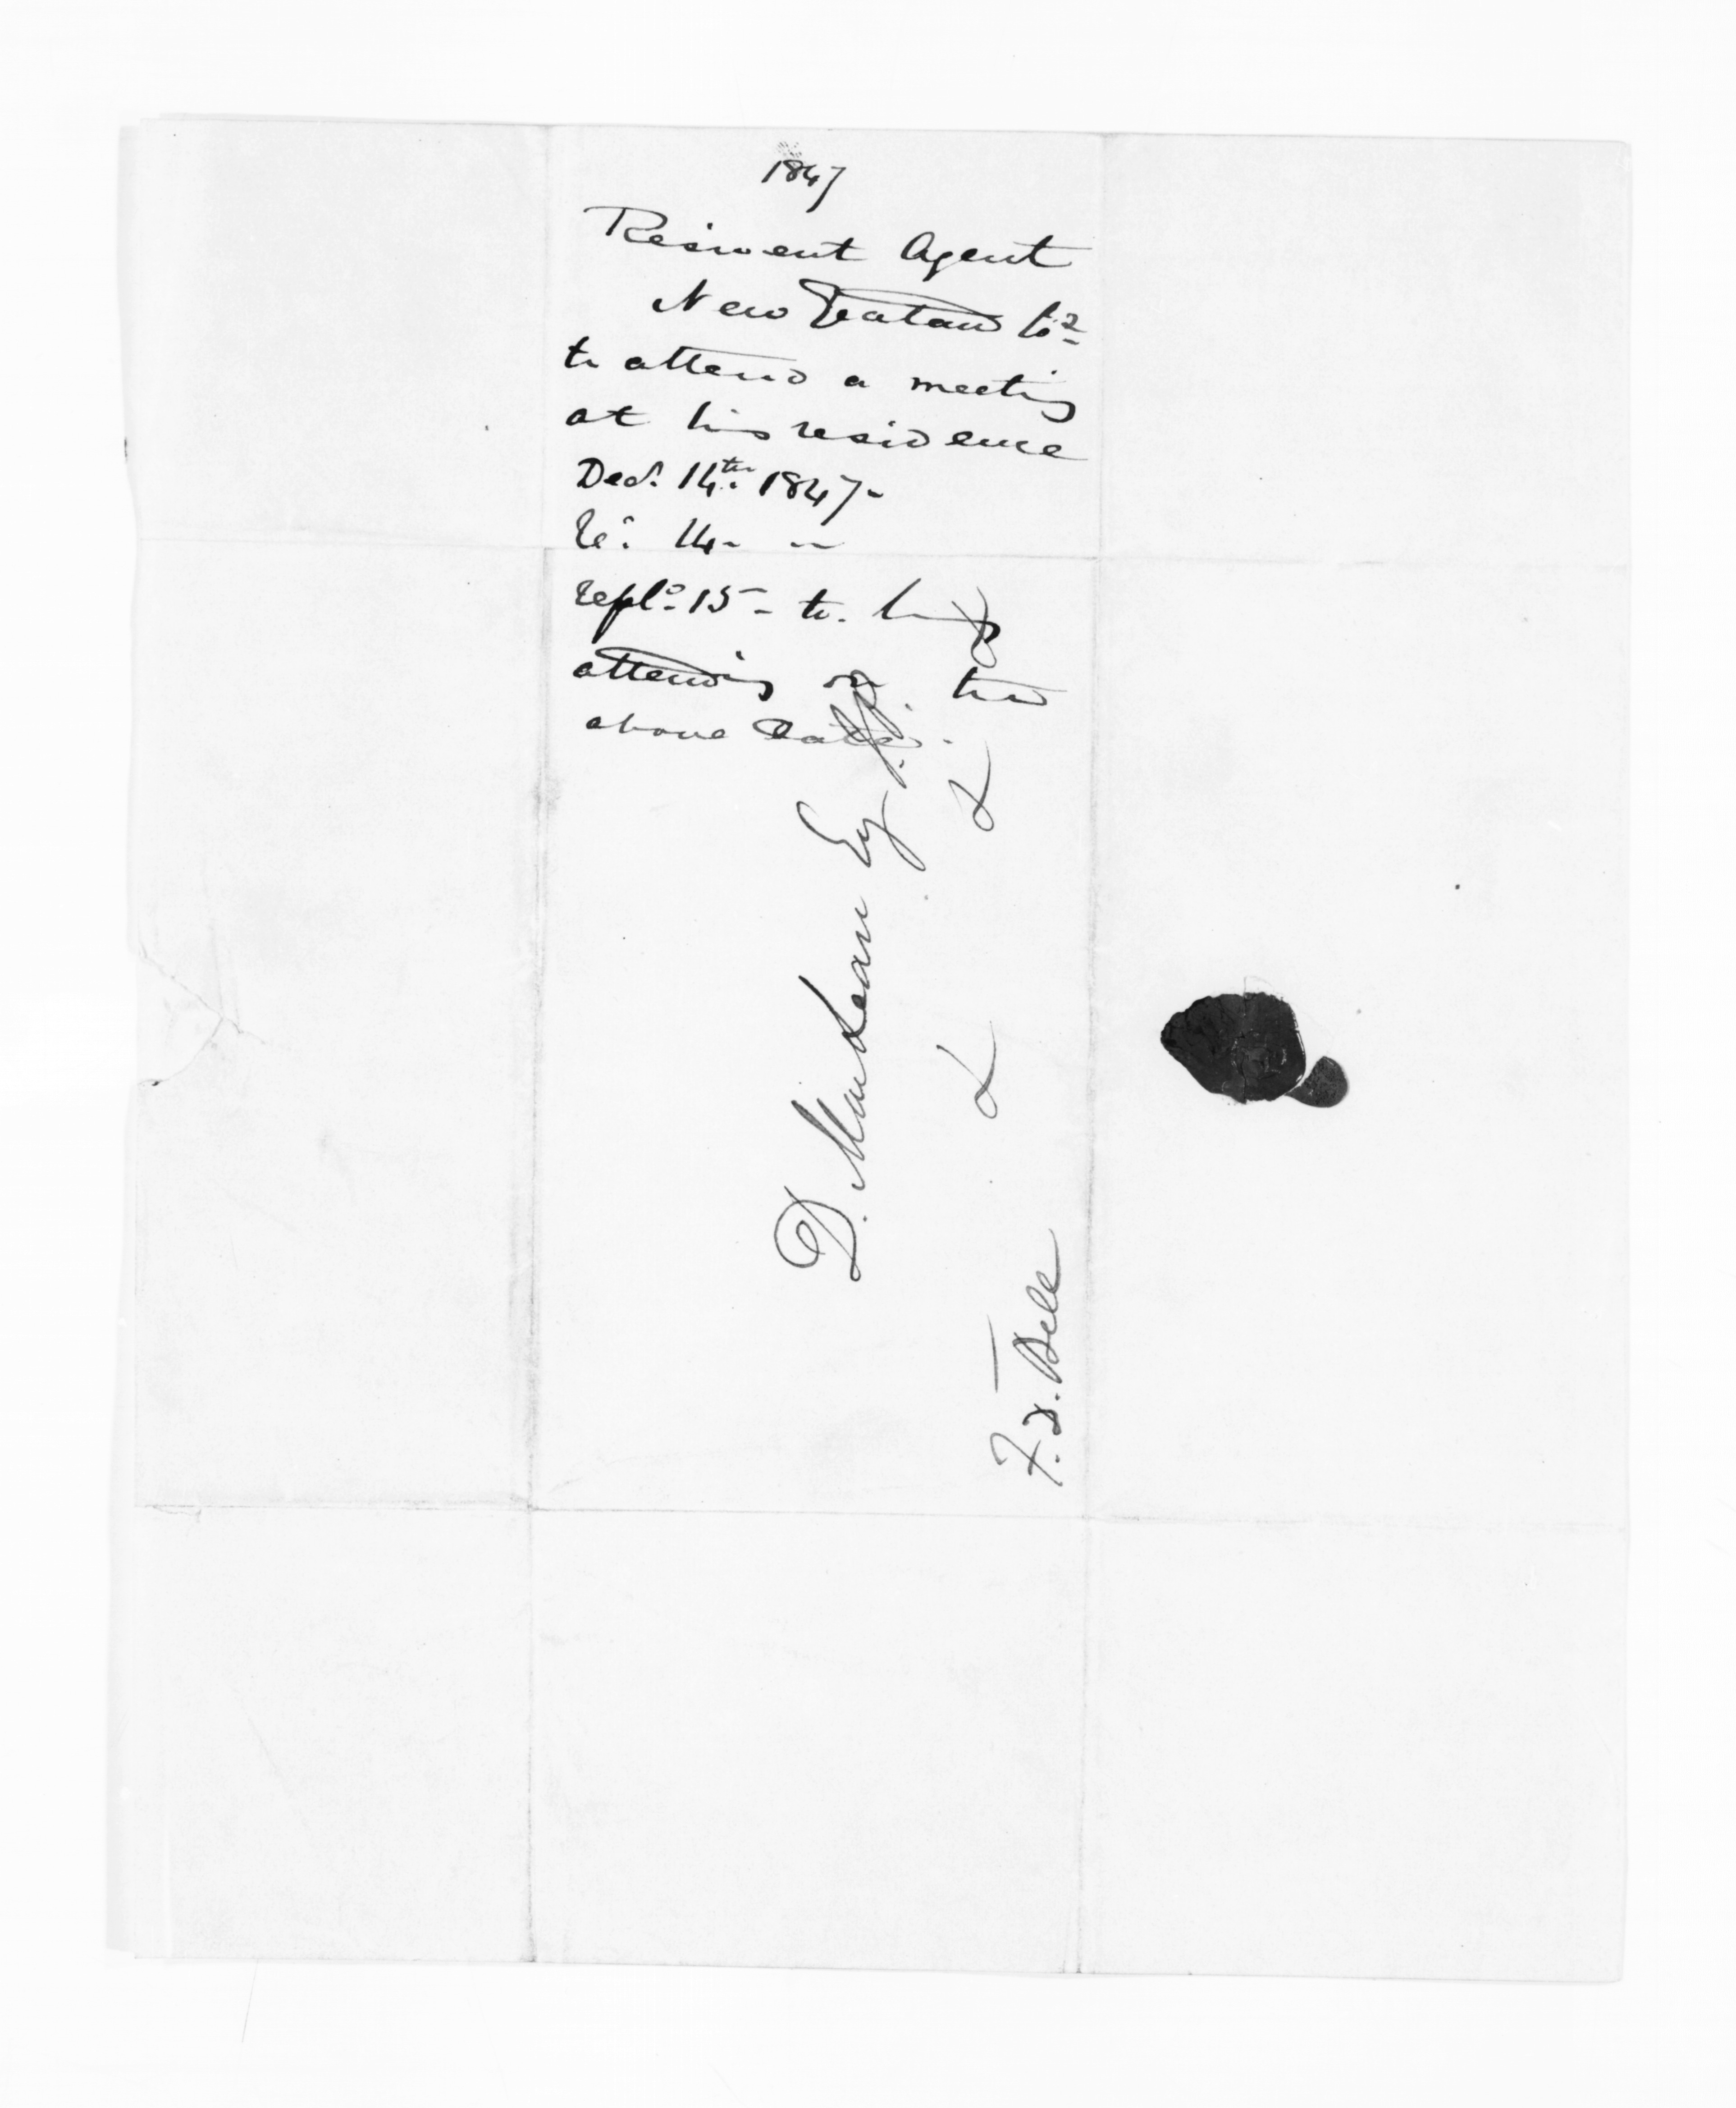 1847
Resident Agent
New Zealand Co.
to attend a meeting
at his residence
Decr. 14th. 1847-
Re. 14 -
Repld. 15 - to his
attending on the
above date.
D. MacLean Esq J.P.
&
&
&
F. D. Bell